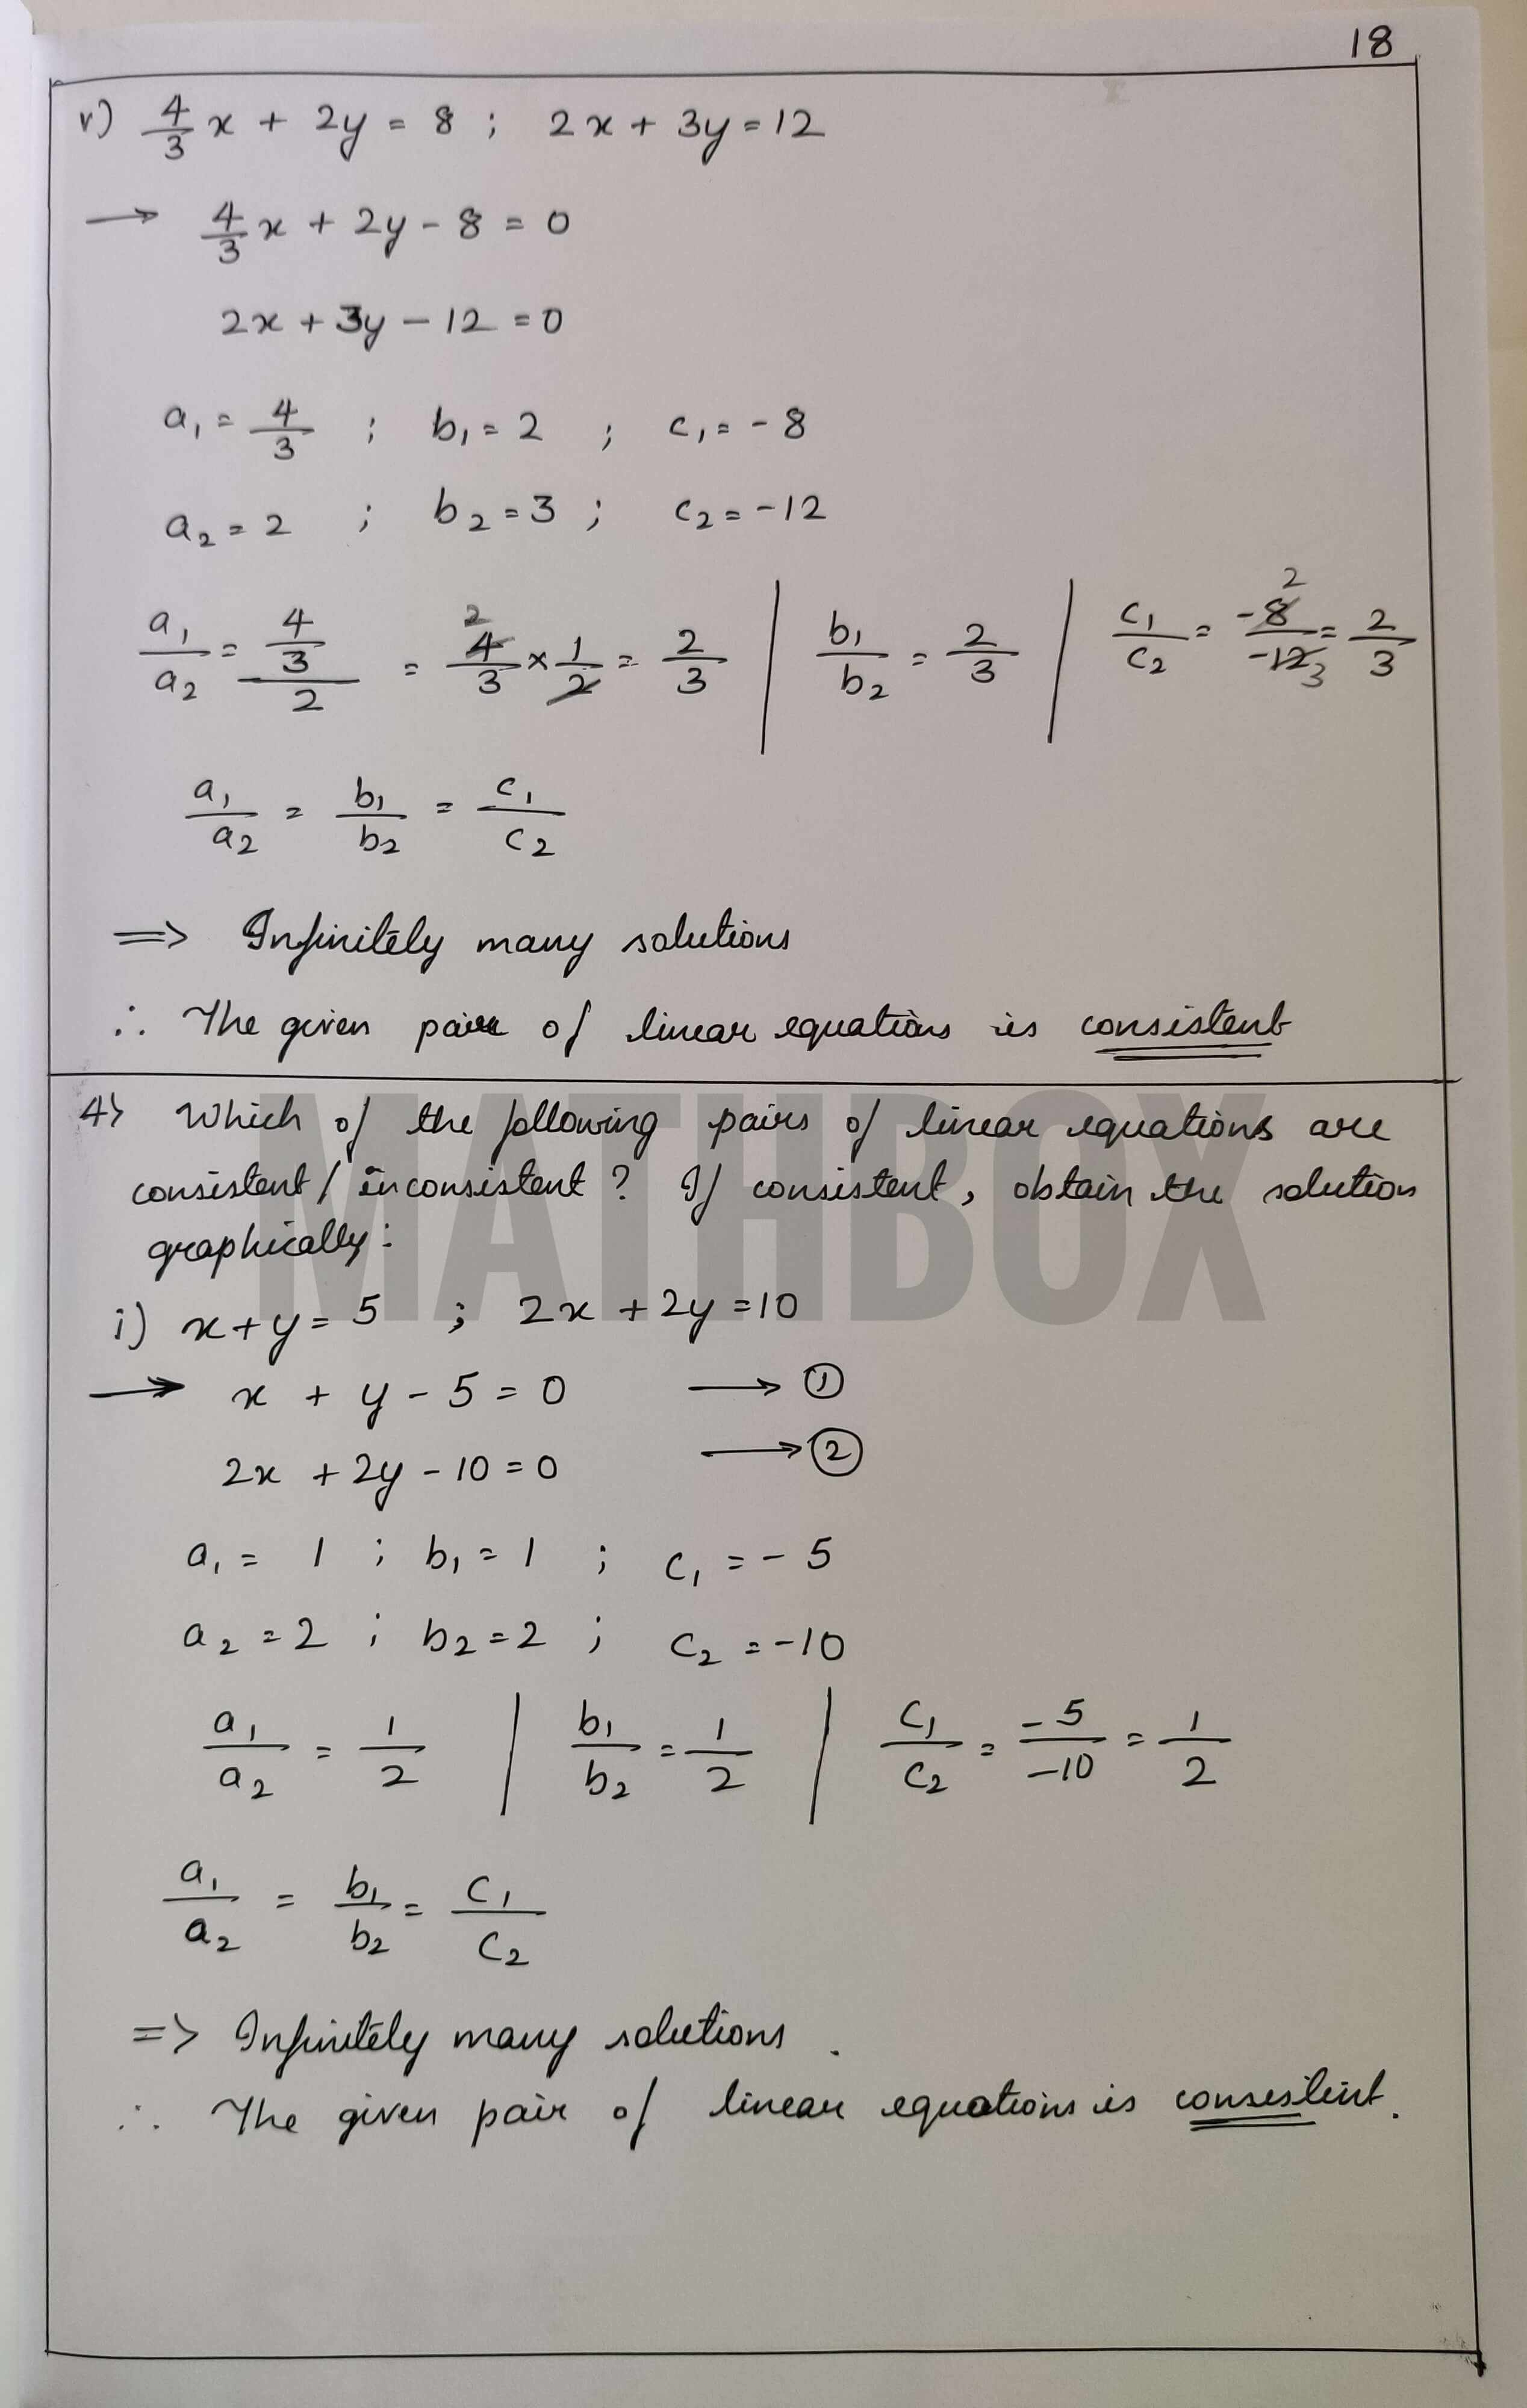 18
v) 4/3 x + 2y = 8 ; 2x + 3y = 12
→ 4/3 x + 2y - 8 = 0
2x + 3y - 12 = 0
a₁ = 4/3 ; b₁ = 2 ; c₁ = -8
a₂ = 2 ; b₂ = 3 ; c₂ = -12
a₁/a₂ = (4/3)/2 = 4/3 × 1/2 = 2/3 | b₁/b₂ = 2/3 | c₁/c₂ = -8/-12 = 2/3
a₁/a₂ = b₁/b₂ = c₁/c₂
=> Infinitely many solutions
∴ The given pair of linear equations is consistent
MATHBOX
4> Which of the following pairs of linear equations are
consistent / inconsistent ? If consistent, obtain the solution
graphically :
i) x + y = 5 ; 2x + 2y = 10
→ x + y - 5 = 0 → ①
2x + 2y - 10 = 0 → ②
a₁ = 1 ; b₁ = 1 ; c₁ = -5
a₂ = 2 ; b₂ = 2 ; c₂ = -10
a₁/a₂ = 1/2 | b₁/b₂ = 1/2 | c₁/c₂ = -5/-10 = 1/2
a₁/a₂ = b₁/b₂ = c₁/c₂
=> Infinitely many solutions .
∴ The given pair of linear equations is consistent.